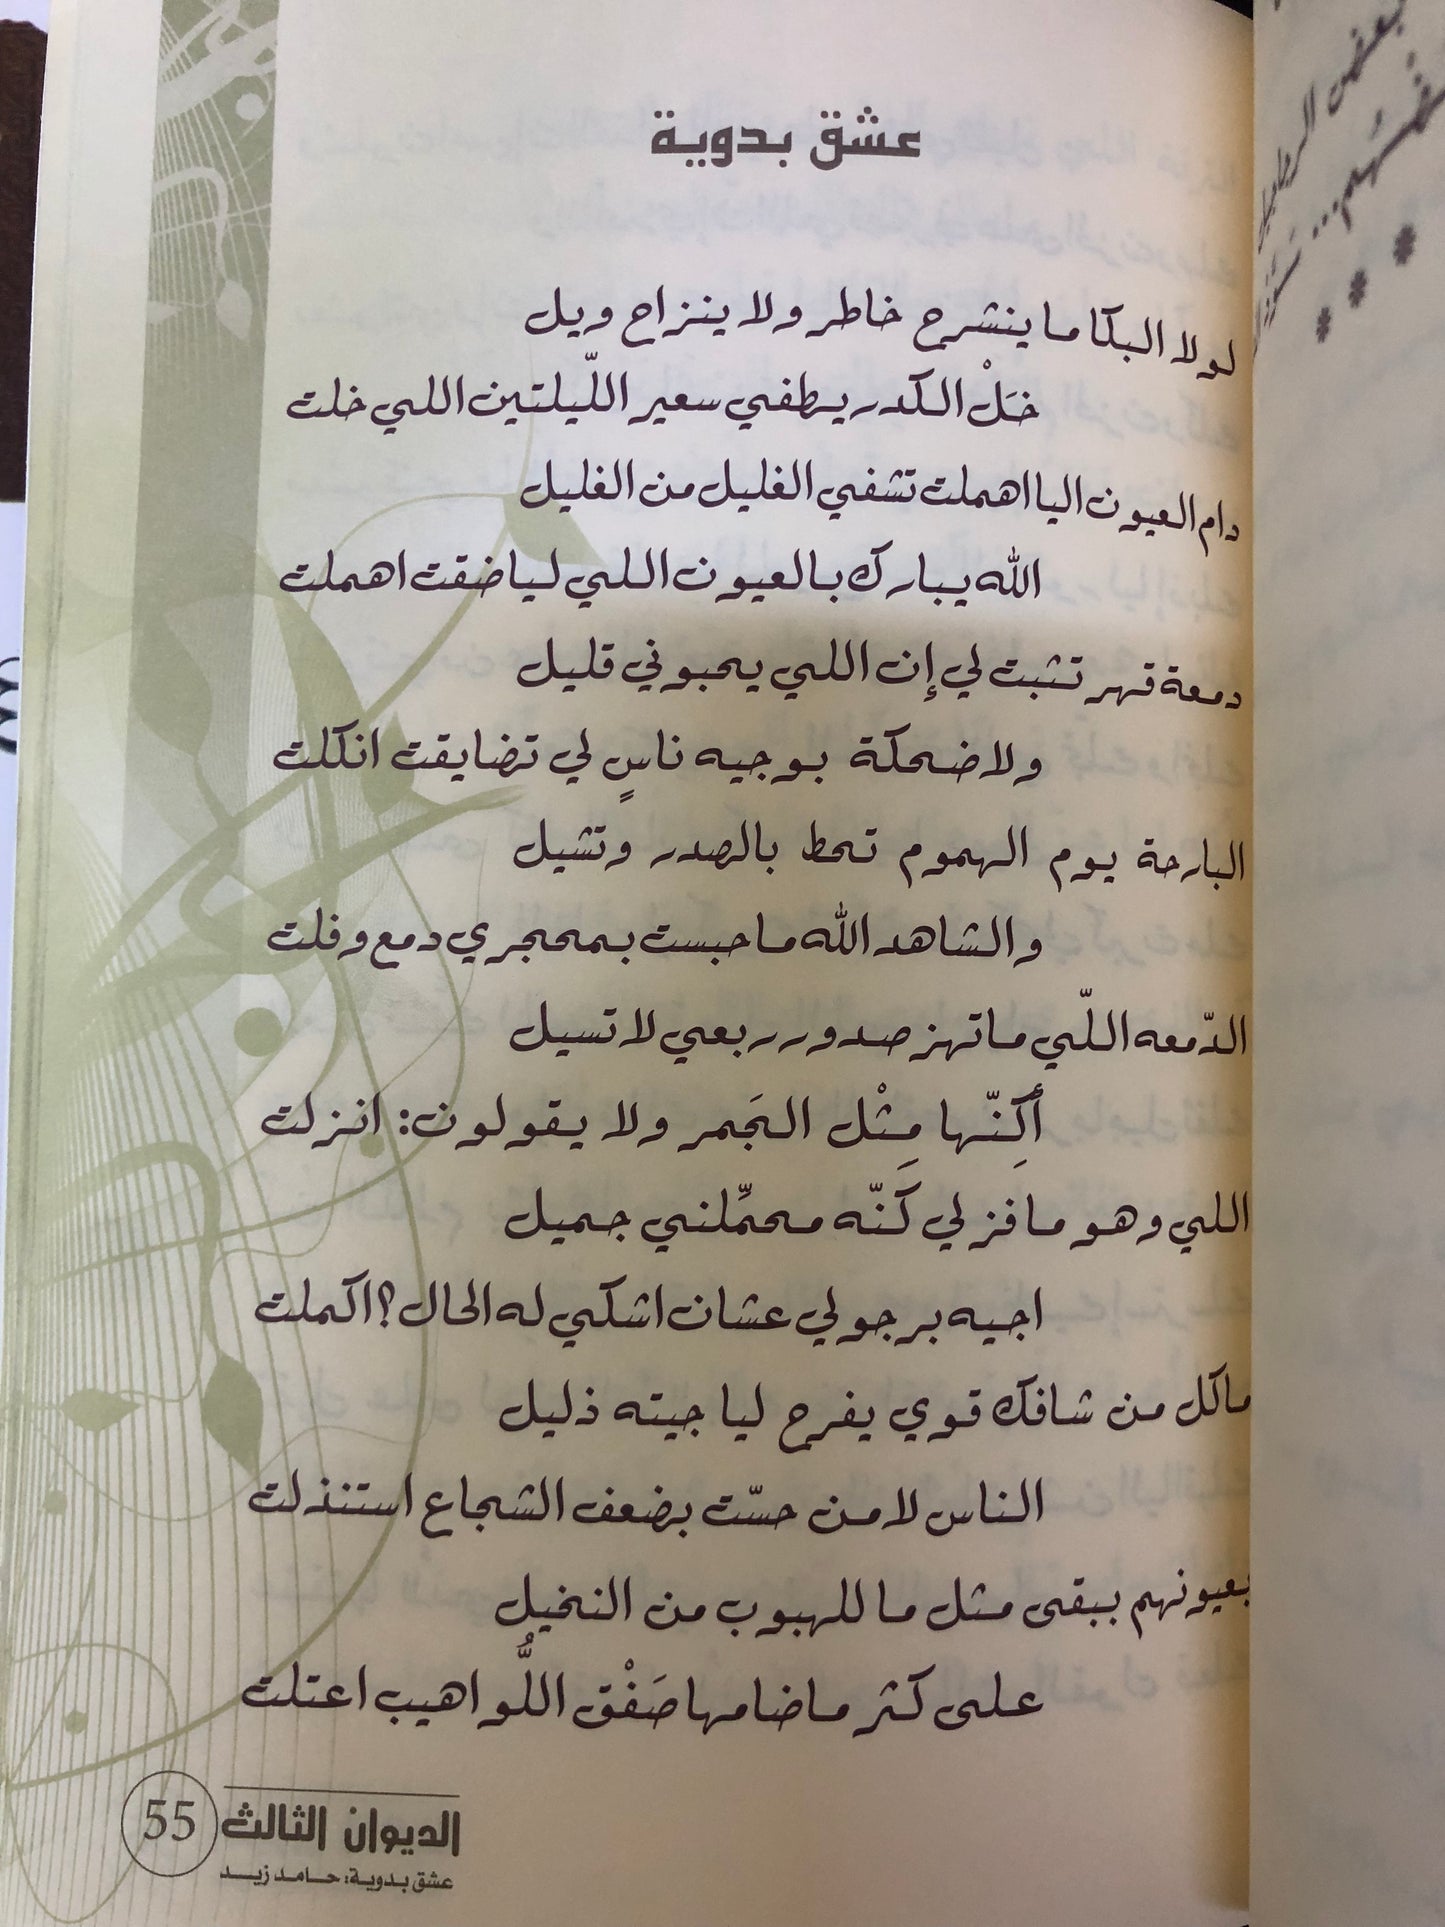 عشق بدوية
لولا البكا ما ينشرح خاطر ولا ينزاح ويل
خَلْ الكدر يطفي سعير اللّيلتين اللي خلت
دام العيون اليا اهملت تشفي الغليل من الغليل
الله يبارك بالعيون اللي ليا ضقت اهملت
دمعة قهر تثبت لي إن اللي يحبوني قليل
ولا ضحكة بوجيه ناسٍ لي تضايقت انكلت
البارحة يوم الهموم تحط بالصدر وتشيل
والشاهد الله ما حبست بمحجري دمع وفلت
الدّمعه اللّي ما تهز صدور ربعي لا تسيل
أكِنّها مِثْل الجَمر ولا يقولون: انزلت
اللي وهو ما فز لي كَنّه محمِّلني جميل
اجيه برجولي عشان اشكي له الحال؟ اكملت
ما كل من شافك قوي يفرح ليا جيته ذليل
الناس لا من حسّت بضعف الشجاع استنذلت
بعيونهم ببقى مثل ما للهبوب من النخيل
على كثر ما ضامها صَفْق اللُّواهيب اعتلت
55
الديوان الثالث
عشق بدوية: حامد زيد
بعض الرجال
* * *